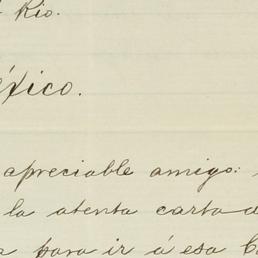 Rio.
éxico.
apreciable amigo:
la atenta carta d
para ir á esa C